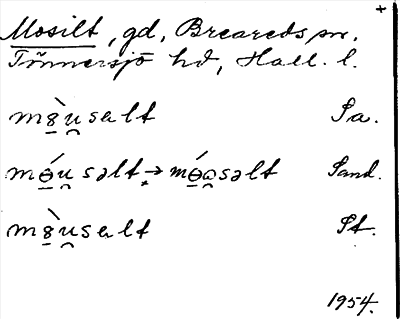 +
Mosilt, gd, Breareds sn.
Tönnersjö hd, Hall. l.
mɵ̀u̯salt Sa.
mɵ́u̯səlt → mɵ́o̯səlt Sand.
St.
1954.